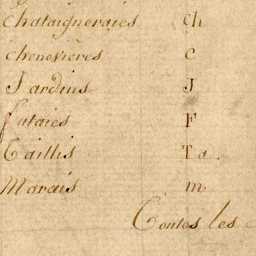 Chataigneraies ch
chenevieres c
Jardins J
futaies F
Taillis Ta.
Marais m
Toutes les